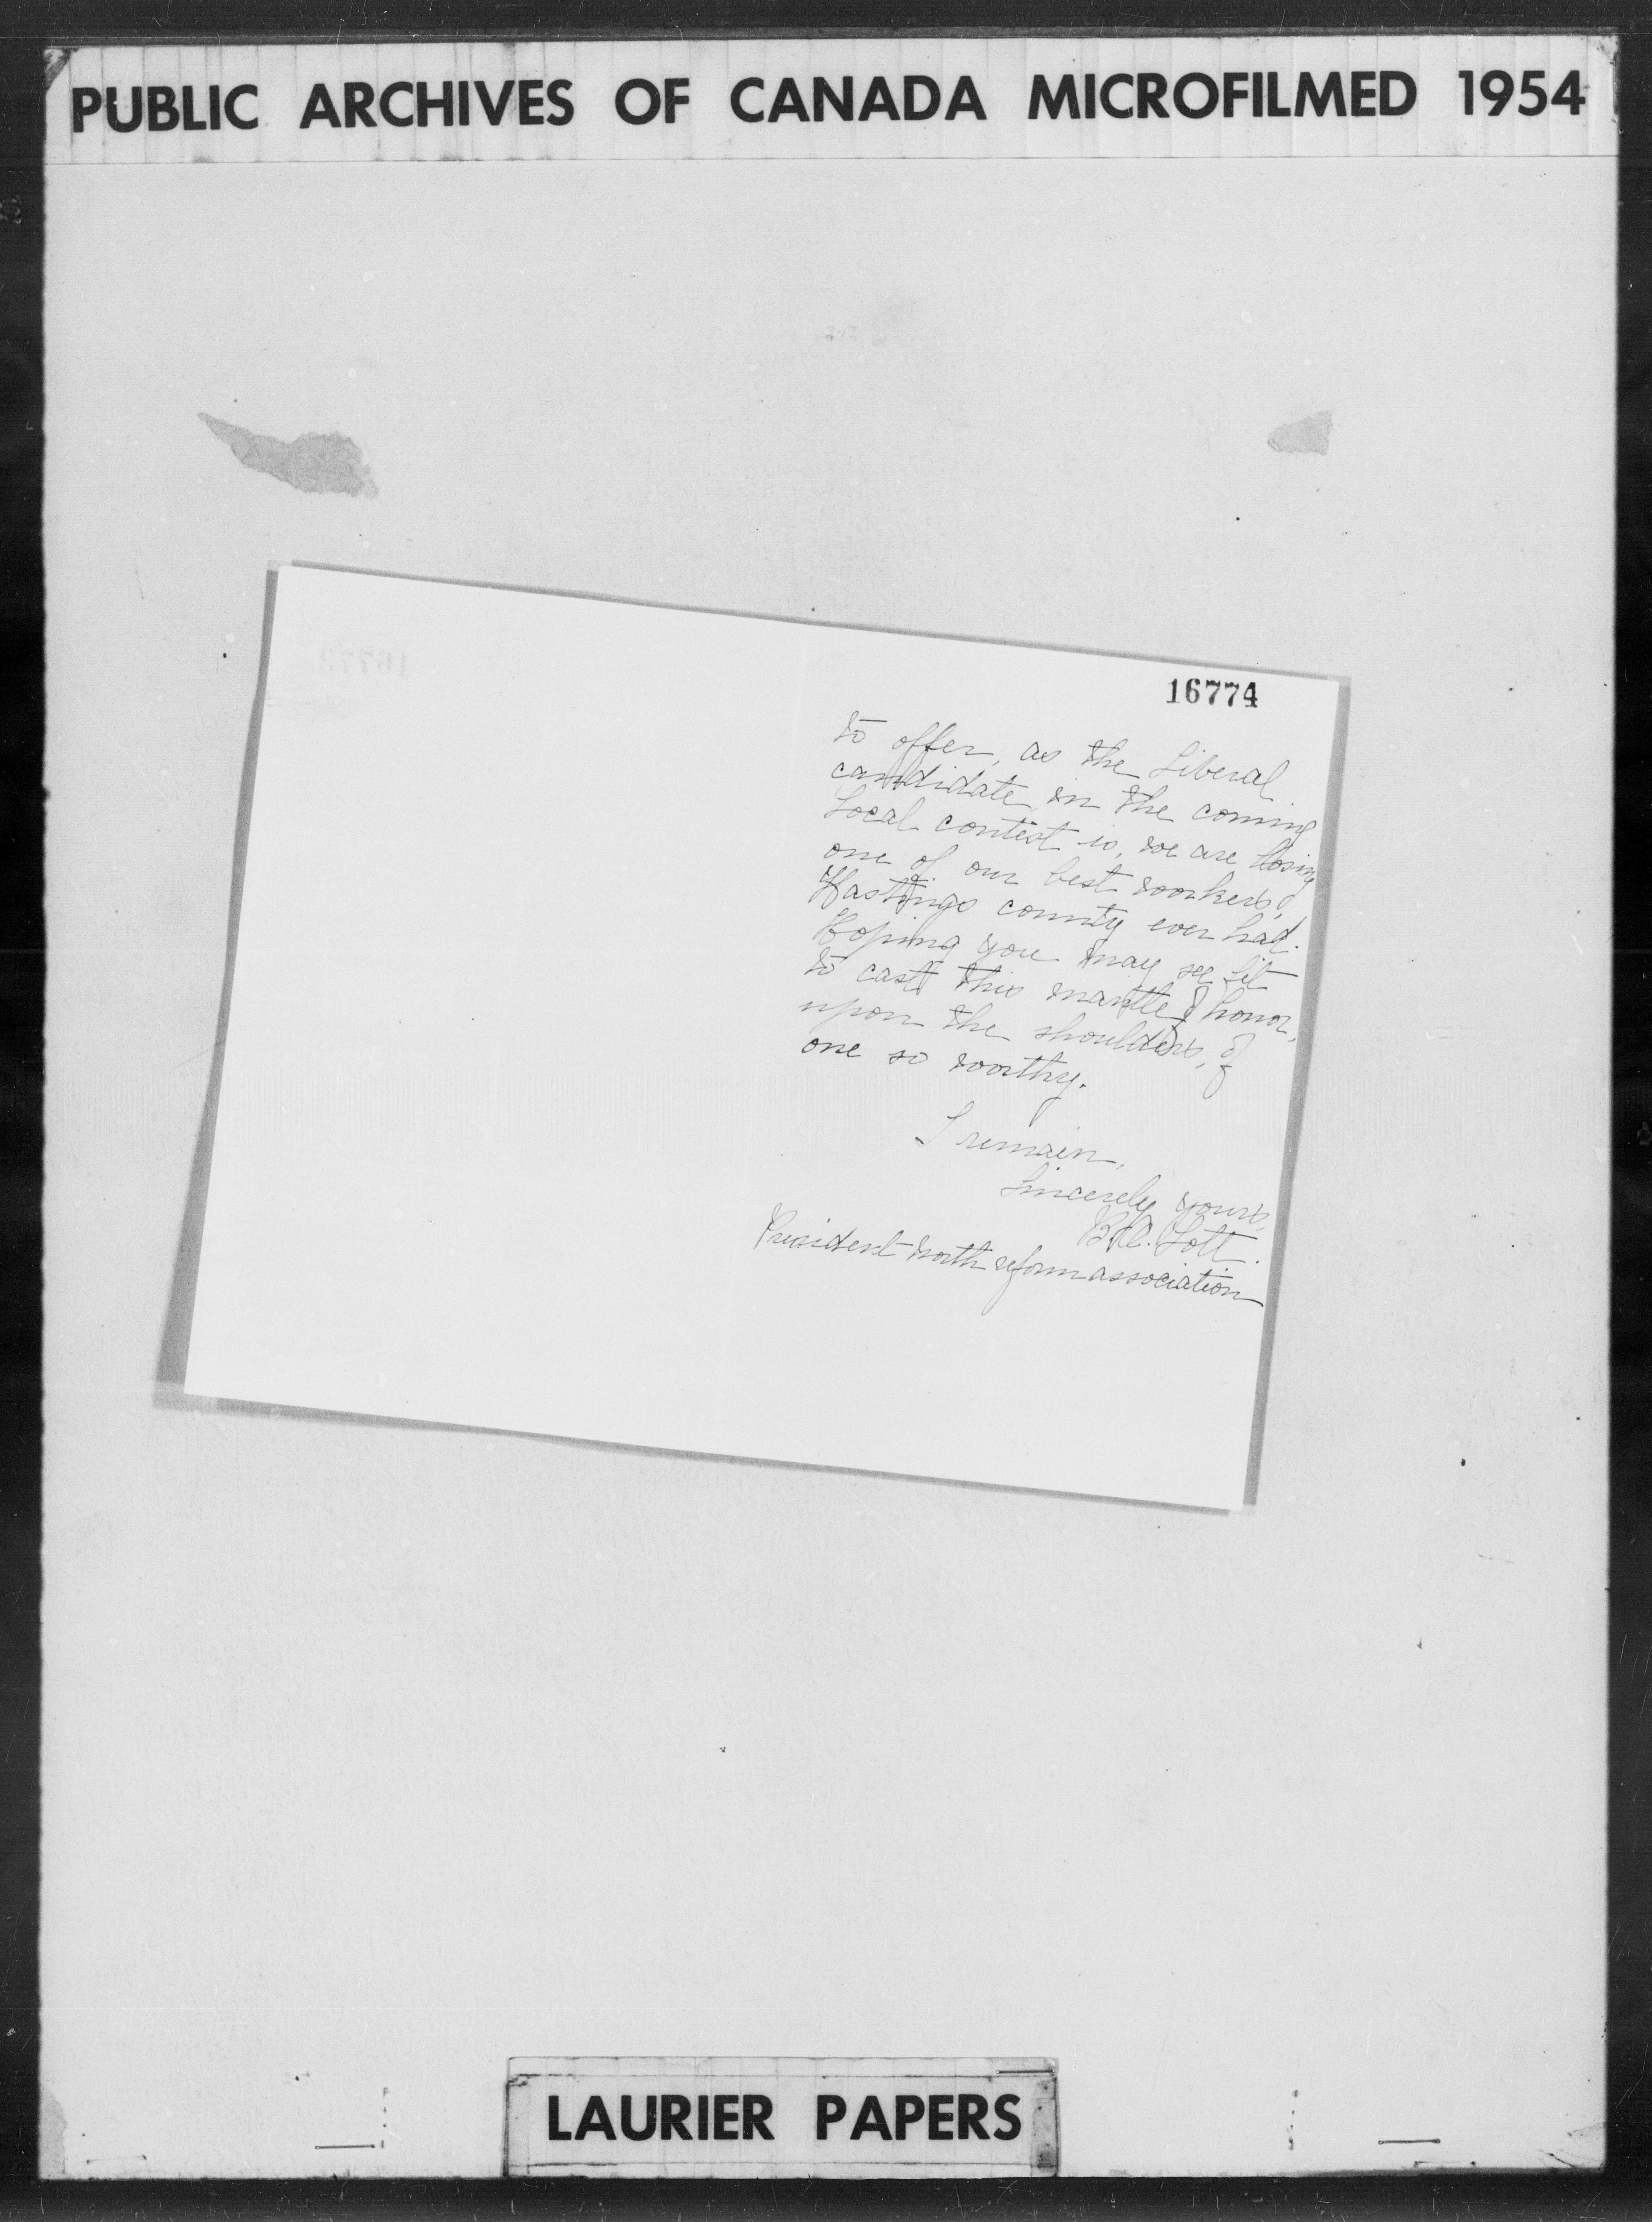 PUBLIC ARCHIVES OF CANADA MICROFILMED 1954
16774
to offer, as the Liberal
candidate in the coming
Local contest is, we are losing
one of our best workers,
Hastings county ever had.
Hoping you may see fit
to cast this mantle of honor,
upon the shoulders, of
one so worthy.
I remain,
Sincerely yours,
Lott.
President North reform association
LAURIER PAPERS